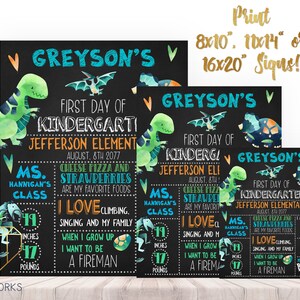 Print
8x10", 11x14" o
16x20" Signs!
GREYSON'S
FIRST DAY OF
KINDERGART
JEFFERSON ELEMENT
AUGUST, 8TH 2077
MS.
HANNIGAN'S
CLASS
CHEESE PIZZA AND
STRAWBERRIES
ARE MY FAVORITE FOODS
I LOVE CLIMBING,
SINGING AND MY FAMILY
WHEN I GROW UP
I WANT TO BE
A FIREMAN
POUNDS
17
GREYSON'S
FIRST DAY OF
KINDERGART
JEFFERSON ELEMEN
AUGUST, 8TH 2077
MS.
HANNIGAN'S
CLASS
CHEESE PIZZA AND
STRAWBERRIES
ARE MY FAVORITE FOODS
I LOVE CLIMBING,
SINGING AND MY FAMILY
WHEN I GROW UP
I WANT TO BE
A FIREMAN
17
POUNDS
GREYSON'S
FIRST DAY OF
KINDERGARTE
JEFFERSON ELEMENTA
MS.
CLASS
STRAWBERRIES
I LOVE
SINGING AND MY FAMILY
WHEN I GROW UP
I WANT TO BE
A FIREMAN
17
ORKS